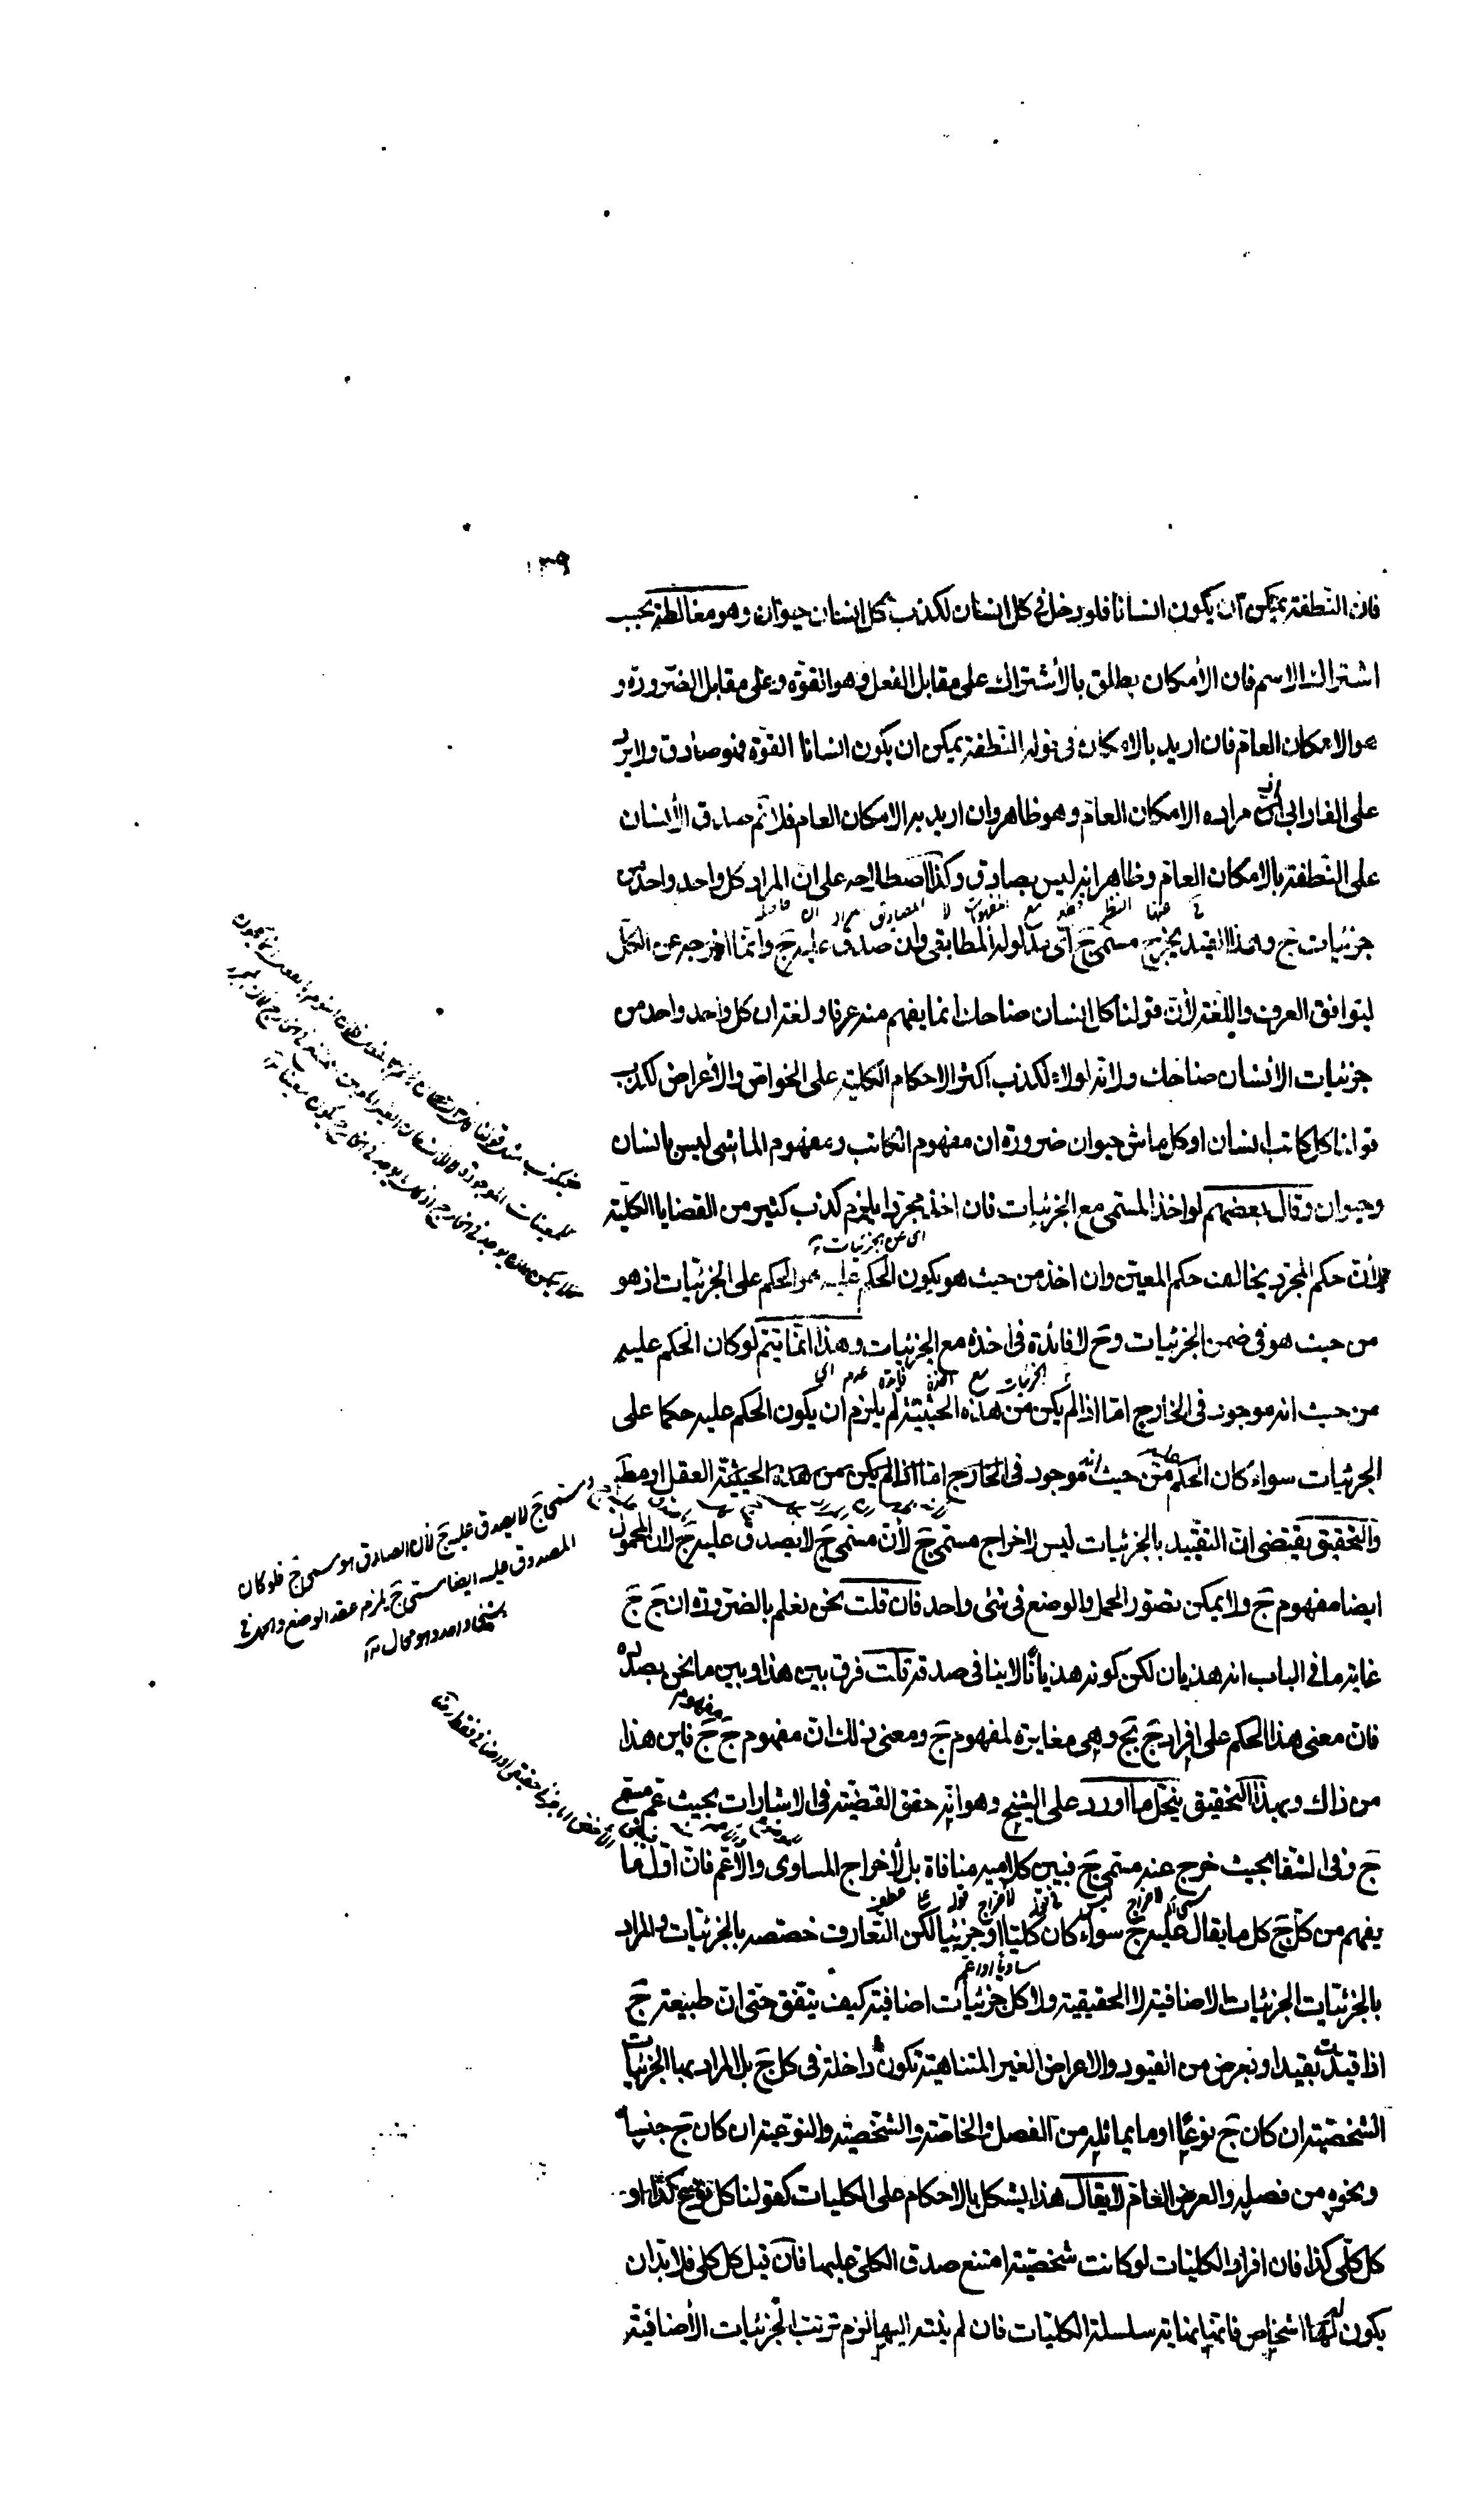 ١٣٩
فان النطفة يمكن ان يكون انسانا فلو دخل في كل انسان لكذب كل انسان حيوان وهو مغالطة بحسب
اشتراك الاسم فان الأمكان يطلق بالأشتراك على مقابل الفعل وهو القوة وعلى مقابل الضرورة و
هو الامكان العام فان اريد بالامكان في قوله النطفة يمكن ان يكون انسانا القوة فهو صادق ولا يرد
على الفارابي لأن مراده الامكان العام وهو ظاهر وان اريد به الامكان العام فلا نم صدق الأنسان
على النطفة بالامكان العام وظاهر انه ليس بصادق وكذا اصطلاحه على ان المراد كل واحد واحد من
جزئيات ج وبهذا القيد يخرج مسمى ج اى مدلوله المطابقى وان صدق عليه ج وانما اخرجه عن الكل
ليتوافق العرف واللغة لأن قولنا كل انسان ضاحك انما يفهم منه عرفا ولغة ان كل واحد واحد من
جزئيات الانسان ضاحك ولانه لولاه لكذب اكثر الاحكام الكلية على الخواص والأعراض لكذب
قولنا كل كاتب انسان او كل ماش حيوان ضرورة ان مفهوم الكاتب ومفهوم الماشى ليس بانسان
وحيوان وقال بعضهم لو اخذ المسمى مع الجزئيات فان اخذ مجردا يلزم كذب كثير من القضايا الكلية
اى عن الجزئيات
لأن حكم المجرد يخالف حكم المعين وان اخذ من حيث هو يكون الحكم عليه هو الحكم على الجزئيات اذ هو
من حيث هو في ضمن الجزئيات وح لا فائدة في اخذه مع الجزئيات وهذا انما يتم لو كان الحكم عليه
من حيث انه موجود في الخارج اما اذا لم يكن من هذه الحيثية لم يلزم ان يكون الحكم عليه حكما على
الجزئيات سواء كان الحكم من حيث انه موجود في الخارج اما اذا لم يكن من هذه الحيثية العقل او مط
والتحقيق يقتضى ان التقييد بالجزئيات ليس لاخراج مسمى ج لأن مسمى ج لا يصدق عليه ج لان المحمول
ايضا مفهوم ج ولا يمكن تصور الحمل والوضع في شئ واحد فان قلت نحن نعلم بالضرورة ان ج ج
غاية ما في الباب انه هذيان لكن كونه هذيانا لا ينافى صدقه قلت فرق بين هذا وبين ما نحن بصدده
فان معنى هذا الحكم على افراد ج بج وهى مغايرة لمفهوم ج ومعنى ذلك ان مفهوم ج ج فاين هذا
من ذاك وبهذا التحقيق ينحل ما اورد على الشيخ وهو انه حقق القضية في الاشارات بحيث عم مسمى
ج وفى الشفا بحيث خرج عنه مسمى ج فبين كلاميه منافاة بل لأخراج المساوى والأعم فان اول ما
يفهم من كل ج كل ما يقال عليه ج سواء كان كليا او جزئيا لكن التعارف خصصه بالجزئيات والمراد
مساويا او اعم
بالجزئيات الجزئيات الاضافية لا الحقيقية ولا كل جزئيات اضافية كيف يتفق حتى ان طبيعة ج
اذا قيدت بقيد او بعرض من القيود والاعراض الغير المتناهية تكون داخلة في كل ج بل المراد بها الجزئيات
الشخصية ان كان ج نوعا او ما يماثله من الفصل والخاصة والشخصية والنوعية ان كان ج جنسا
ونحوه من فصله والعرض العام لا يقال هذا يشكل بالاحكام على الكليات كقولنا كل نوع كذا او
كل كلى كذا فان افراد الكليات لو كانت شخصية امتنع صدق الكلى عليها فان قيل كل كلى فلا بد ان
يكون لها اشخاص فانها نهاية سلسلة الكليات فان لم ينته اليها لزم ترتب الجزئيات الأضافية
مسمى ج لا يصدق عليه ج لأن الصادق هو مسمى ج فلو كان
المصدوق عليه ايضا مسمى ج يلزم عقد الوضع والحمل في
شئ واحد وهو محال